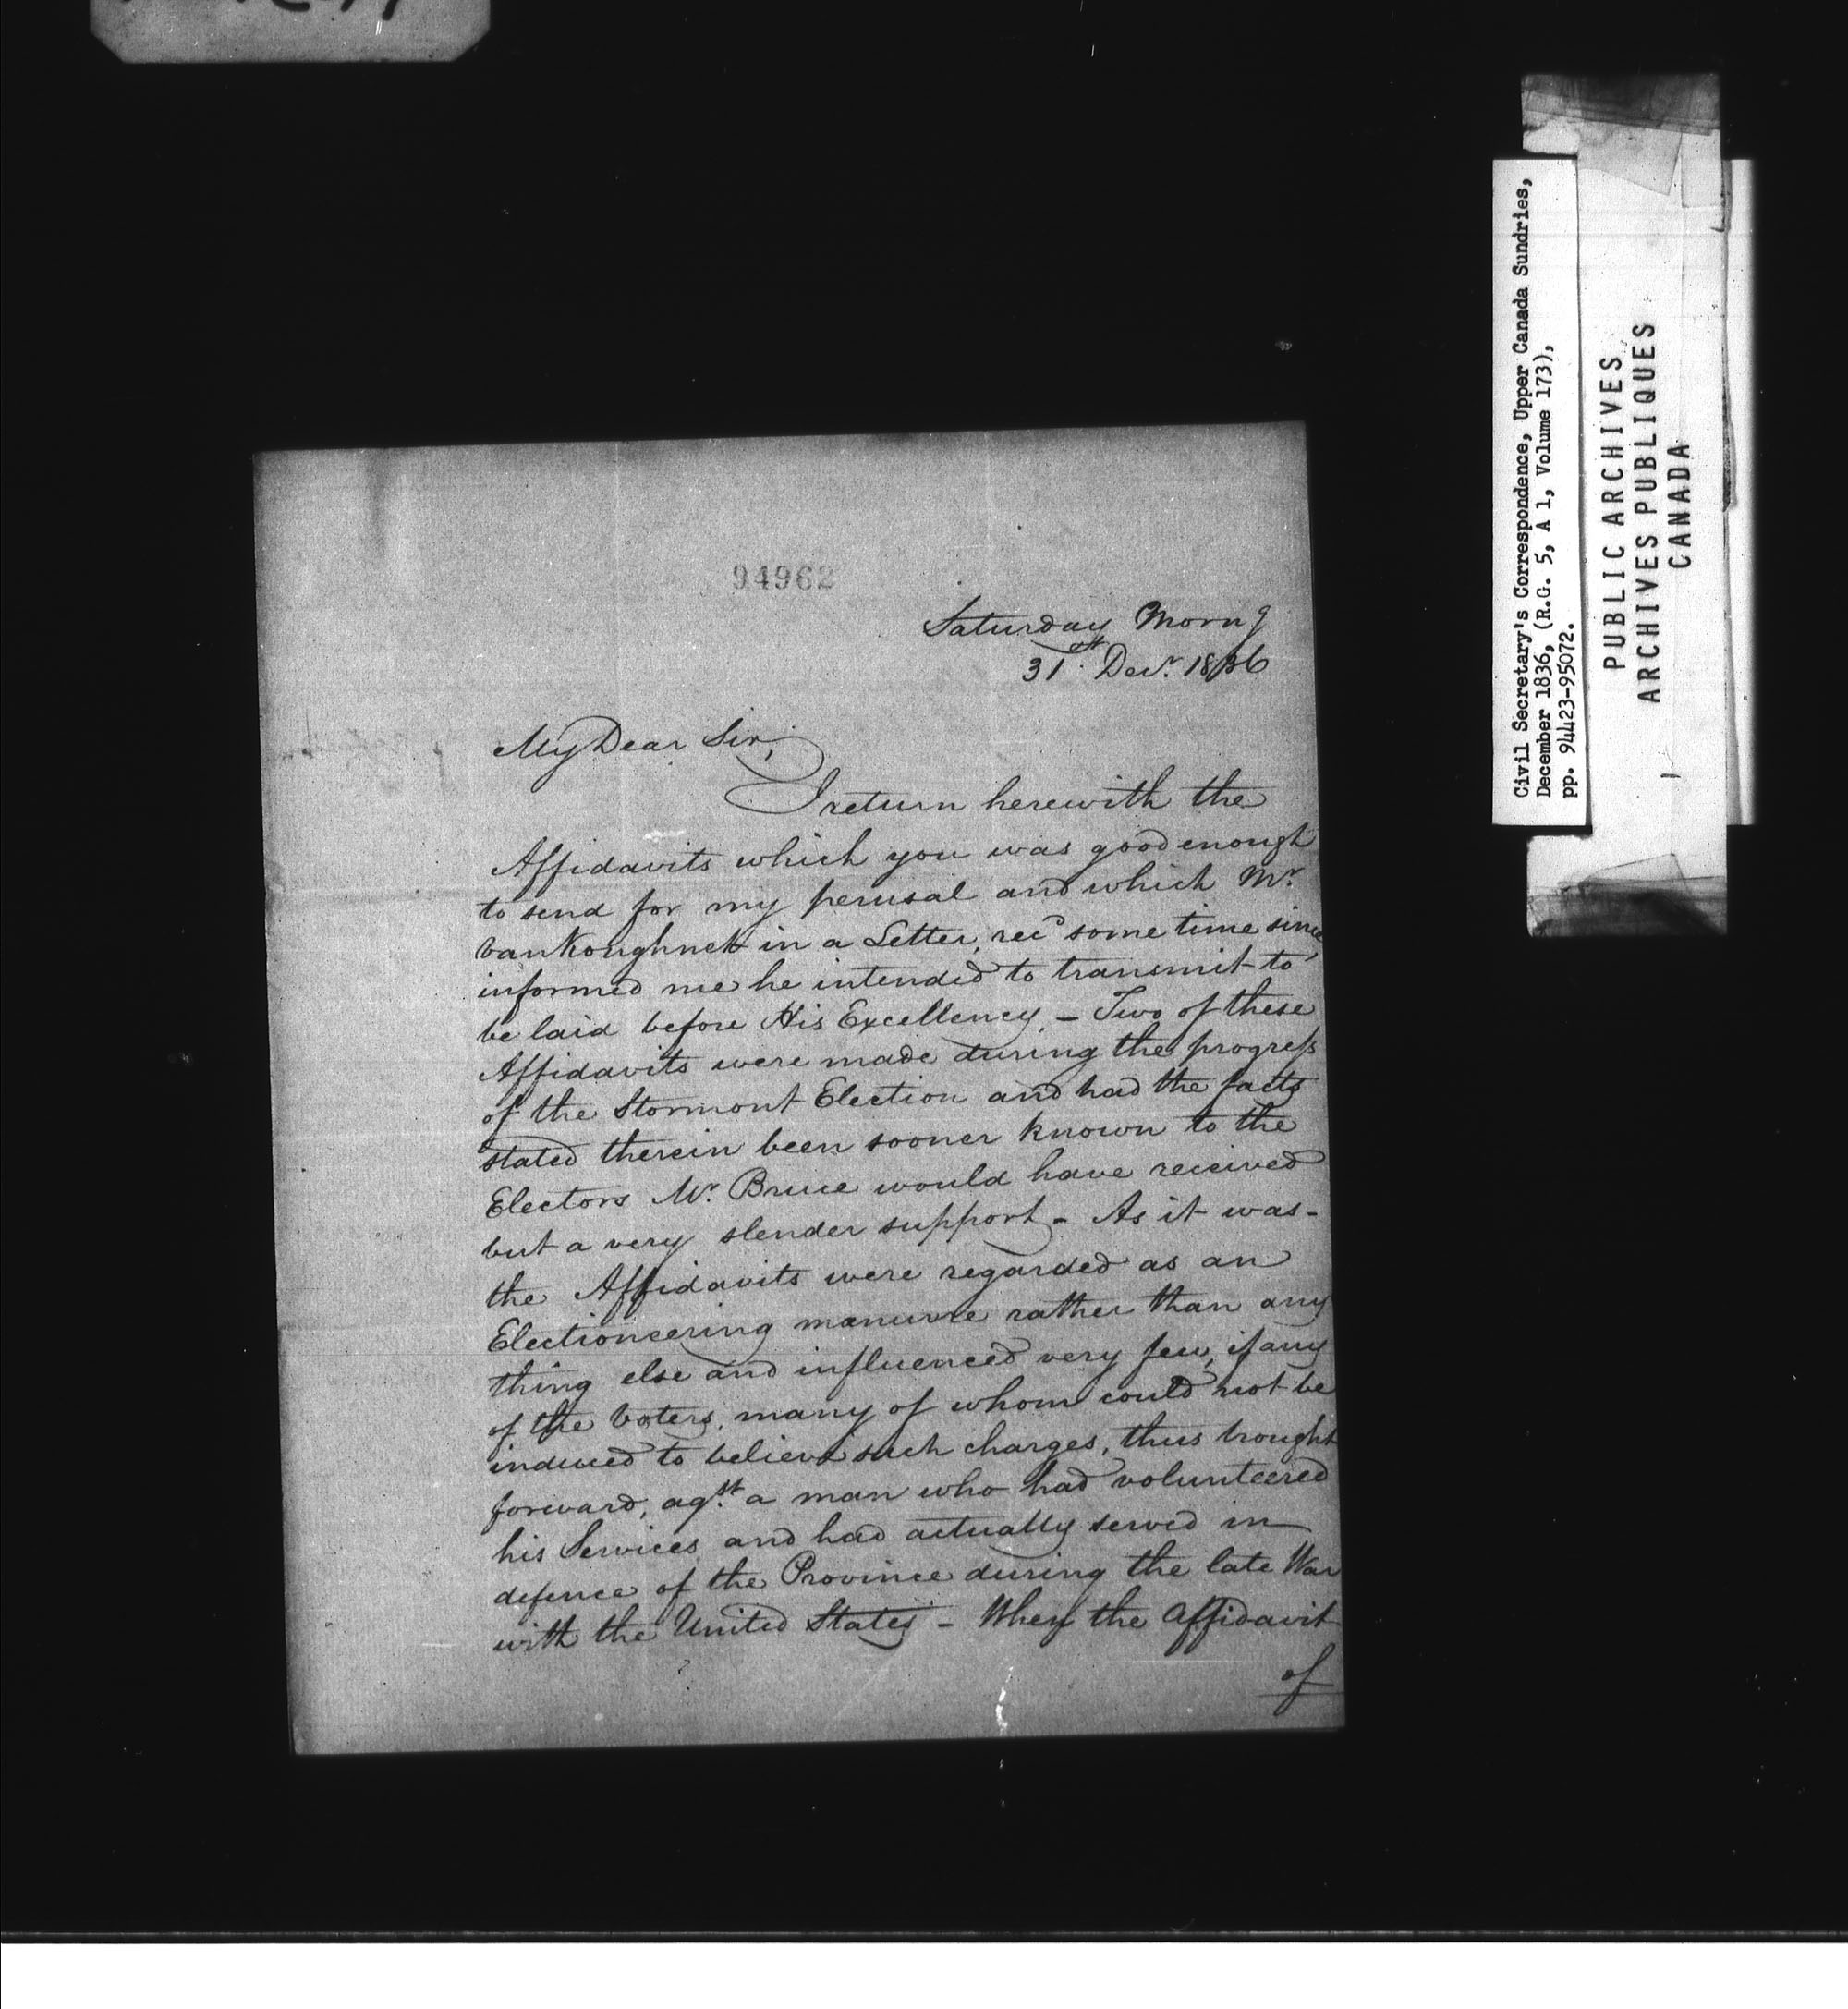 94962
Saturday Morng
31st Decr. 1836
My Dear Sir,
I return herewith the
Affidavits which you was good enough
to send for my perusal and which Mr.
VanKoughnett in a Letter, recd some time since
informed me he intended to transmit to
be laid before His Excellency. - Two of these
Affidavits were made during the progress
of the Stormont Election and had the facts
stated therein been sooner known to the
Electors Mr. Bruce would have received
but a very slender support - As it was -
the Affidavits were regarded as an
Electioneering manuvre rather than any
thing else and influenced very few, if any
of the Voters, many of whom could not be
induced to believe such charges, thus brought
forward, agst. a man who had volunteered
his Services and had actually served in
defence of the Province during the late War
with the United States - When the Affidavit
of
Civil Secretary's Correspondence, Upper Canada Sundries,
December 1836, (R.G. 5, A 1, Volume 173),
pp. 94423-95072.
PUBLIC ARCHIVES
ARCHIVES PUBLIQUES
CANADA